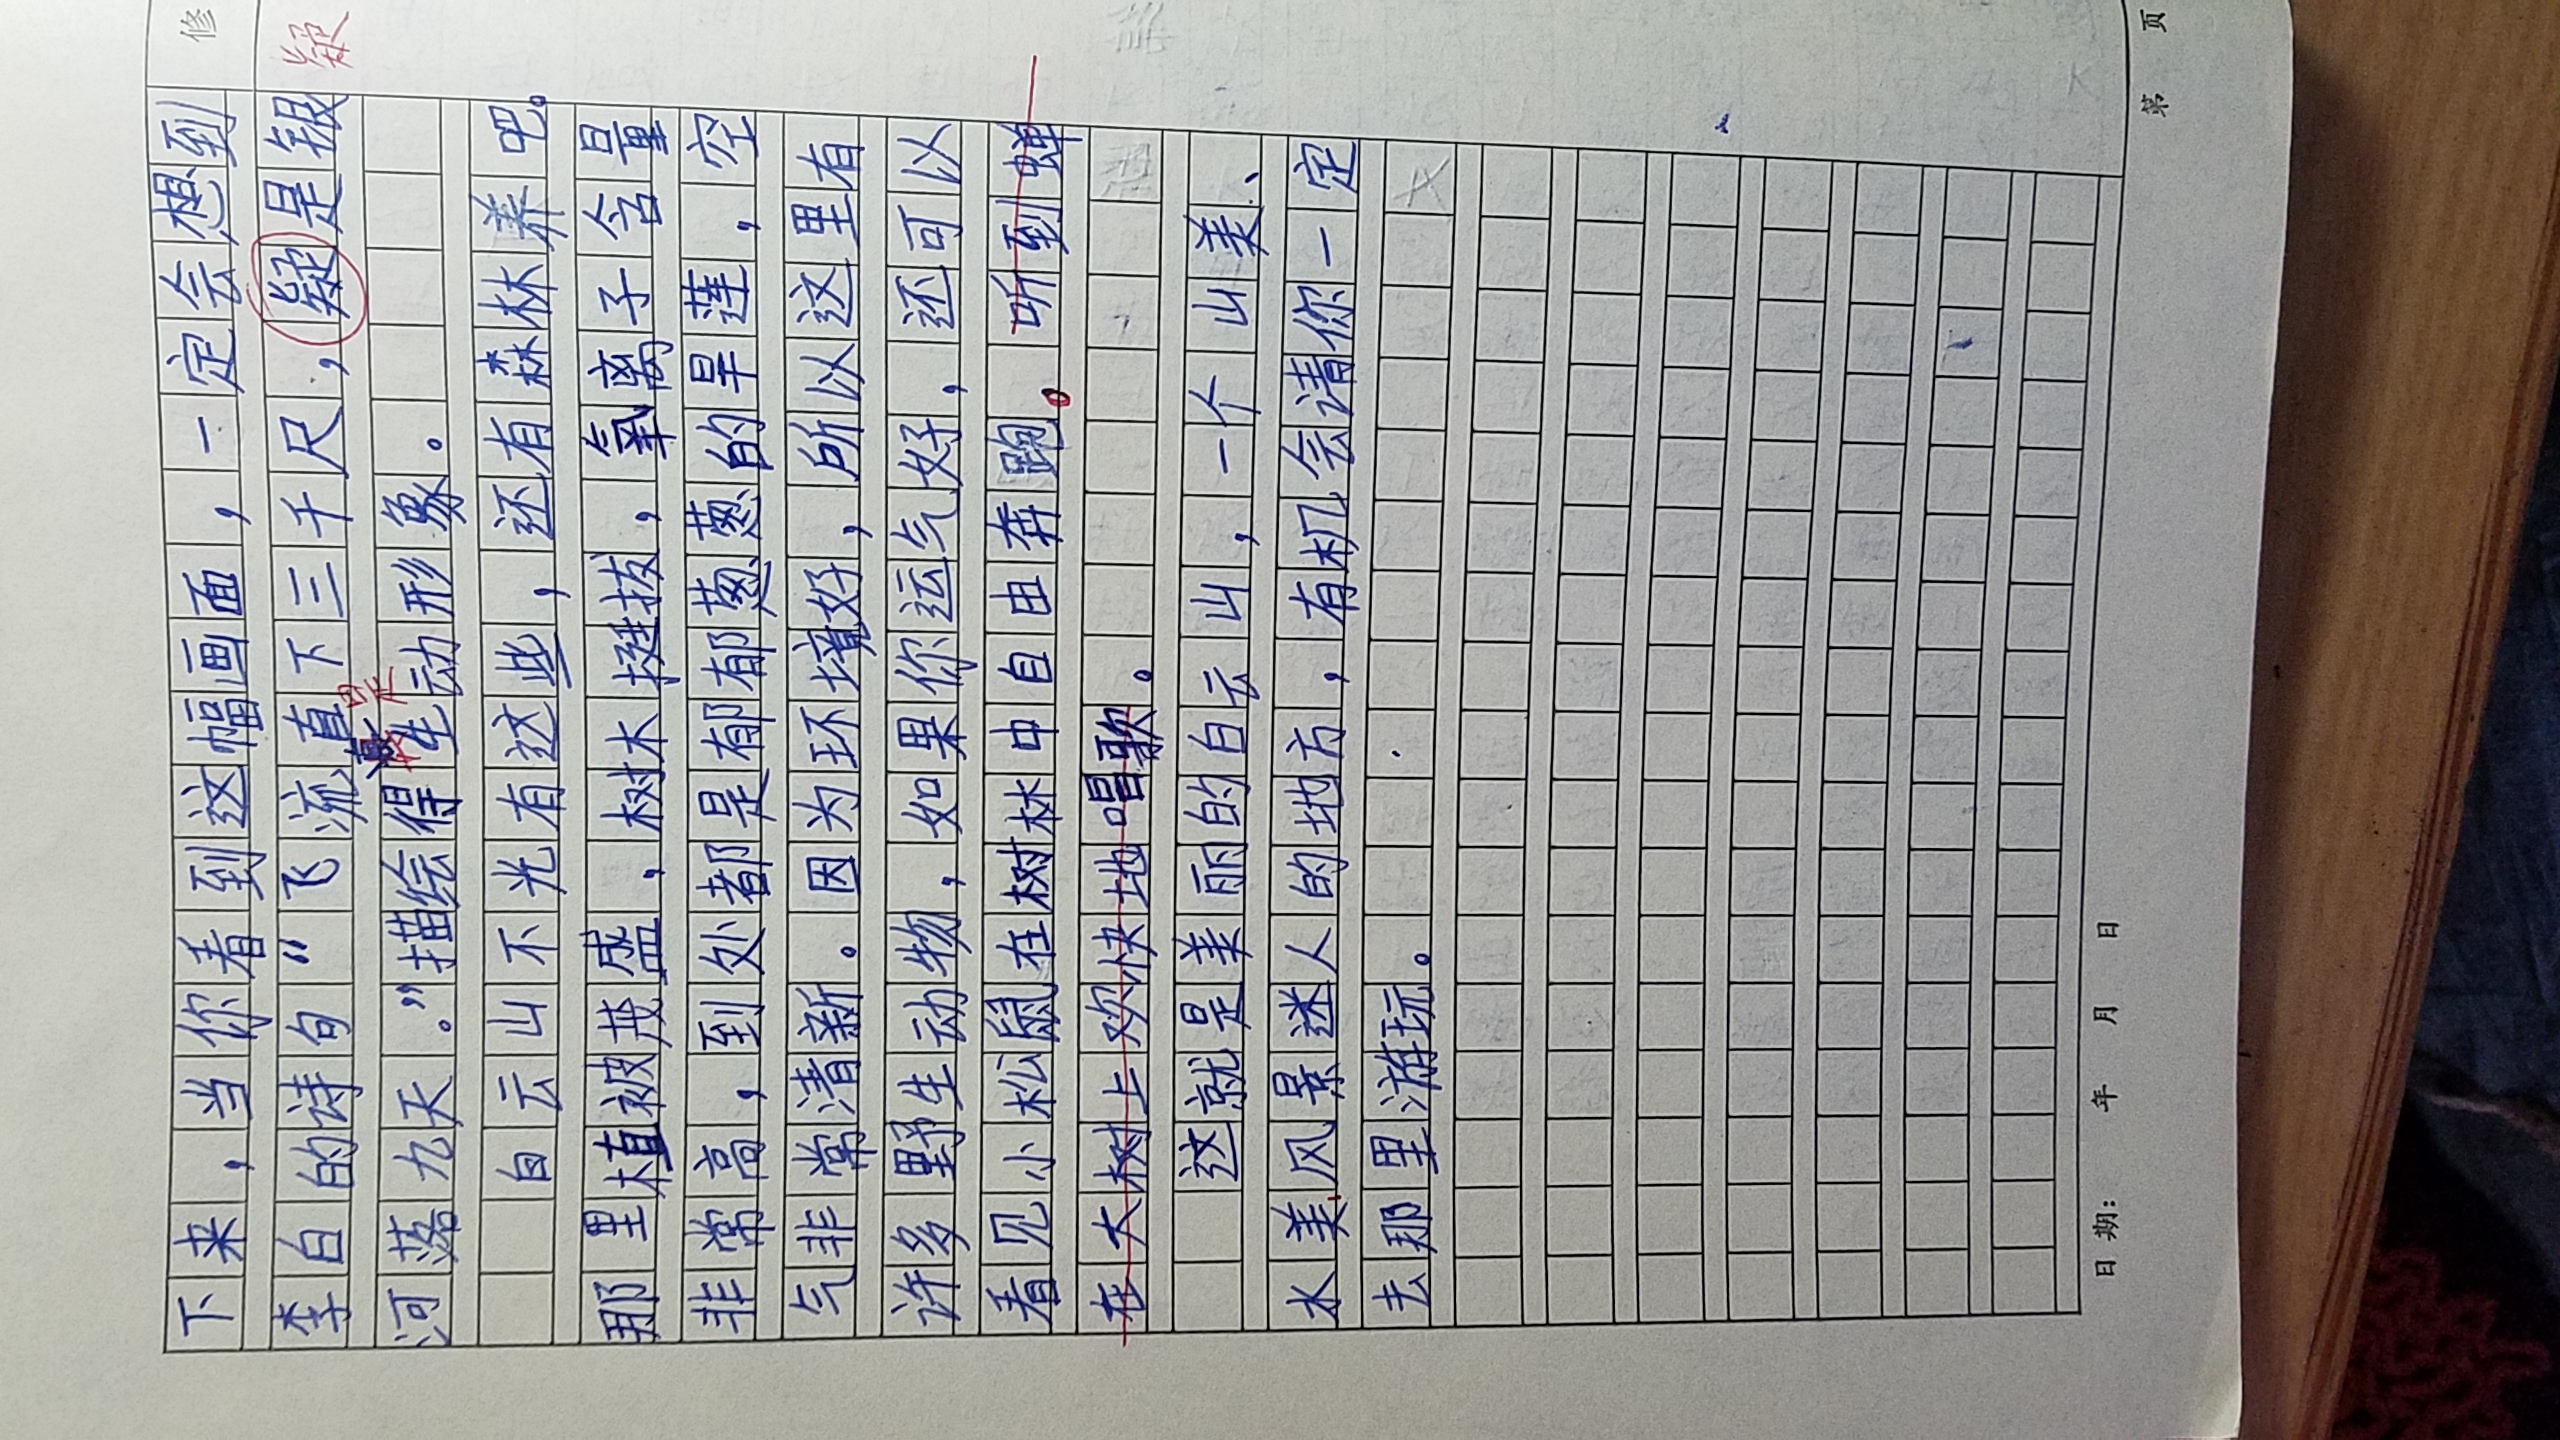 修
下来，当你看到这幅画面，一定会想到
李白的诗句“飞流直下三千尺，疑是银
疑
河落九天。”描绘得生动形象。
白云山不光有这些，还有森林养吧。
那里植被茂盛，树木挺拔，氧离子含量
非常高，到处都是郁郁葱葱的旱莲，空
气非常清新。因为环境好，所以这里有
许多野生动物，如果你运气好，还可以
看见小松鼠在树林中自由奔跑。听到蝉
在大树上欢快地唱歌。
这就是美丽的白云山，一个山美、
水美风景迷人的地方，有机会请你一定
去那里游玩。
日期： 年 月 日
第 页